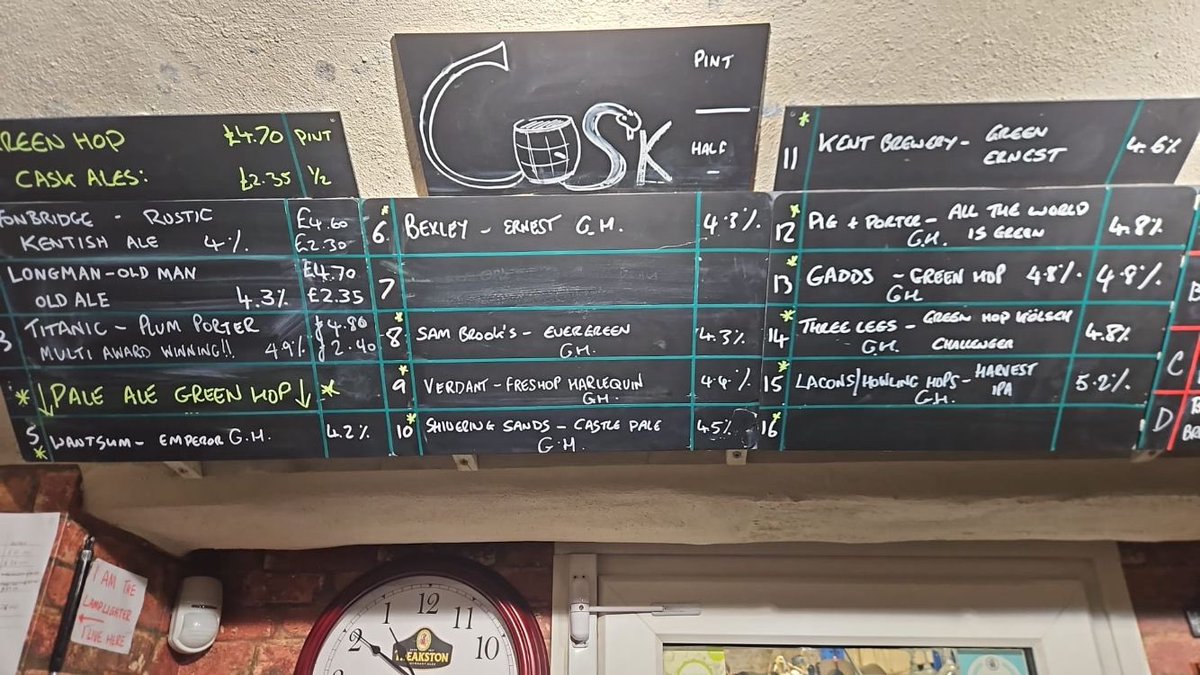 GREEN HOP £4.70 PINT
CASK ALES: £2.35 1/2
TONBRIDGE - RUSTIC £4.60
KENTISH ALE 4% £2.30
LONGMAN-OLD MAN £4.70
OLD ALE 4.3% £2.35
3 TITANIC - PLUM PORTER £4.80
MULTI AWARD WINNING!! 4.9% £2.40
* ↓ PALE ALE GREEN HOP ↓ *
5 * WANTSUM - EMPEROR G.H. 4.2%
CASK
PINT
HALF
6 * BEXLEY - ERNEST G.H. 4.3%
7
8 * SAM BROOK'S - EVERGREEN 4.3%
G.H.
9 * VERDANT - FRESHOP HARLEQUIN 4.4%
G.H.
10 * SHIVERING SANDS - CASTLE PALE 4.5%
G.H.
11 * KENT BREWERY - GREEN 4.6%
ERNEST
12 * PIG + PORTER - ALL THE WORLD 4.8%
G.H. IS GREEN
13 * GADDS - GREEN HOP 4.8% 4.8%
GH
14 * THREE LEGS - GREEN HOP KÖLSCH 4.8%
G.H. CHALLENGER
15 * LACONS/HOWLING HOPS - HARVEST 5.2%
G.H. IPA
16 *
C
D
I AM THE
LAMPLIGHTER
←
I LIVE HERE
12
1 11
2 10
THEAKSTON